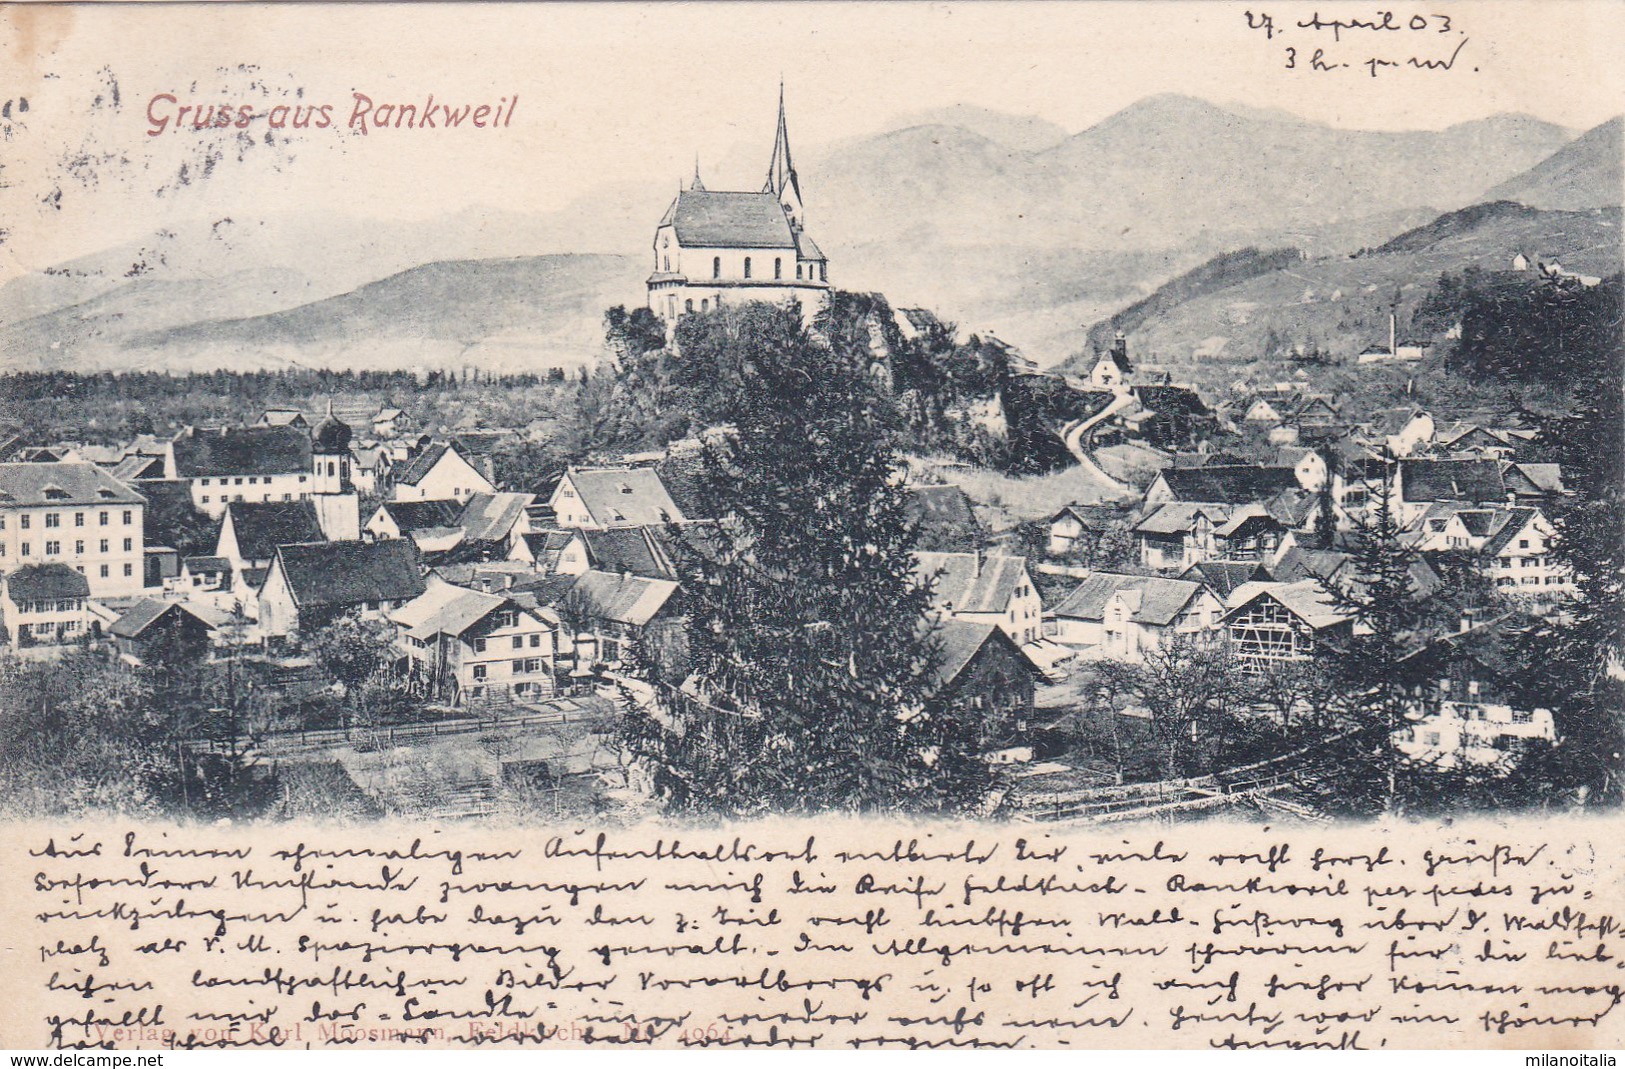 27. April 03.
3 h. p. m.
Gruss aus Rankweil
Aus Deinem ehemaligen Aufenthaltsort entbiete Dir viele recht herzl. Grüße.
Besondere Umstände zwangen mich die Reise Feldkirch - Rankweil per pedes zu=
rückzulegen u. habe dazu den z: Teil recht hübschen Wald-Fußweg über d. Waldfest=
platz als V. M. Spaziergang gewält. - Im Allgemeinen schwärme für die lieb=
lichen landschaftlichen Bilder Vorarlbergs u. so oft ich auch hieher kommen mag
gefällt mir das "Ländle" immer wieder aufs neue. Heute war ein schöner
Tag, schwül, u. es wird bald wieder regnen. - August.
Verlag von Karl Moosmann, Feldkirch. Nr. 4064
delcampe.net
milanoitalia